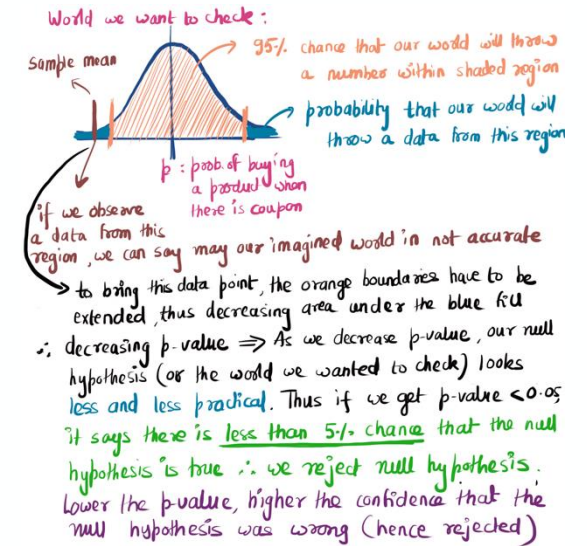 World we want to check:
sample mean
95% chance that our world will throw
a number within shaded region
probability that our world will
throw a data from this region
p: prob. of buying
a product when
there is coupon
if we observe
a data from this
region, we can say may our imagined world in not accurate
to bring this data point, the orange boundaries have to be
extended, thus decreasing area under the blue fill
∴ decreasing p-value ⇒ As we decrease p-value, our null
hypothesis (or the world we wanted to check) looks
less and less practical. Thus if we get p-value <0.05,
it says there is less than 5% chance that the null
hypothesis is true ∴ we reject null hypothesis.
Lower the p-value, higher the confidence that the
null hypothesis was wrong (hence rejected)